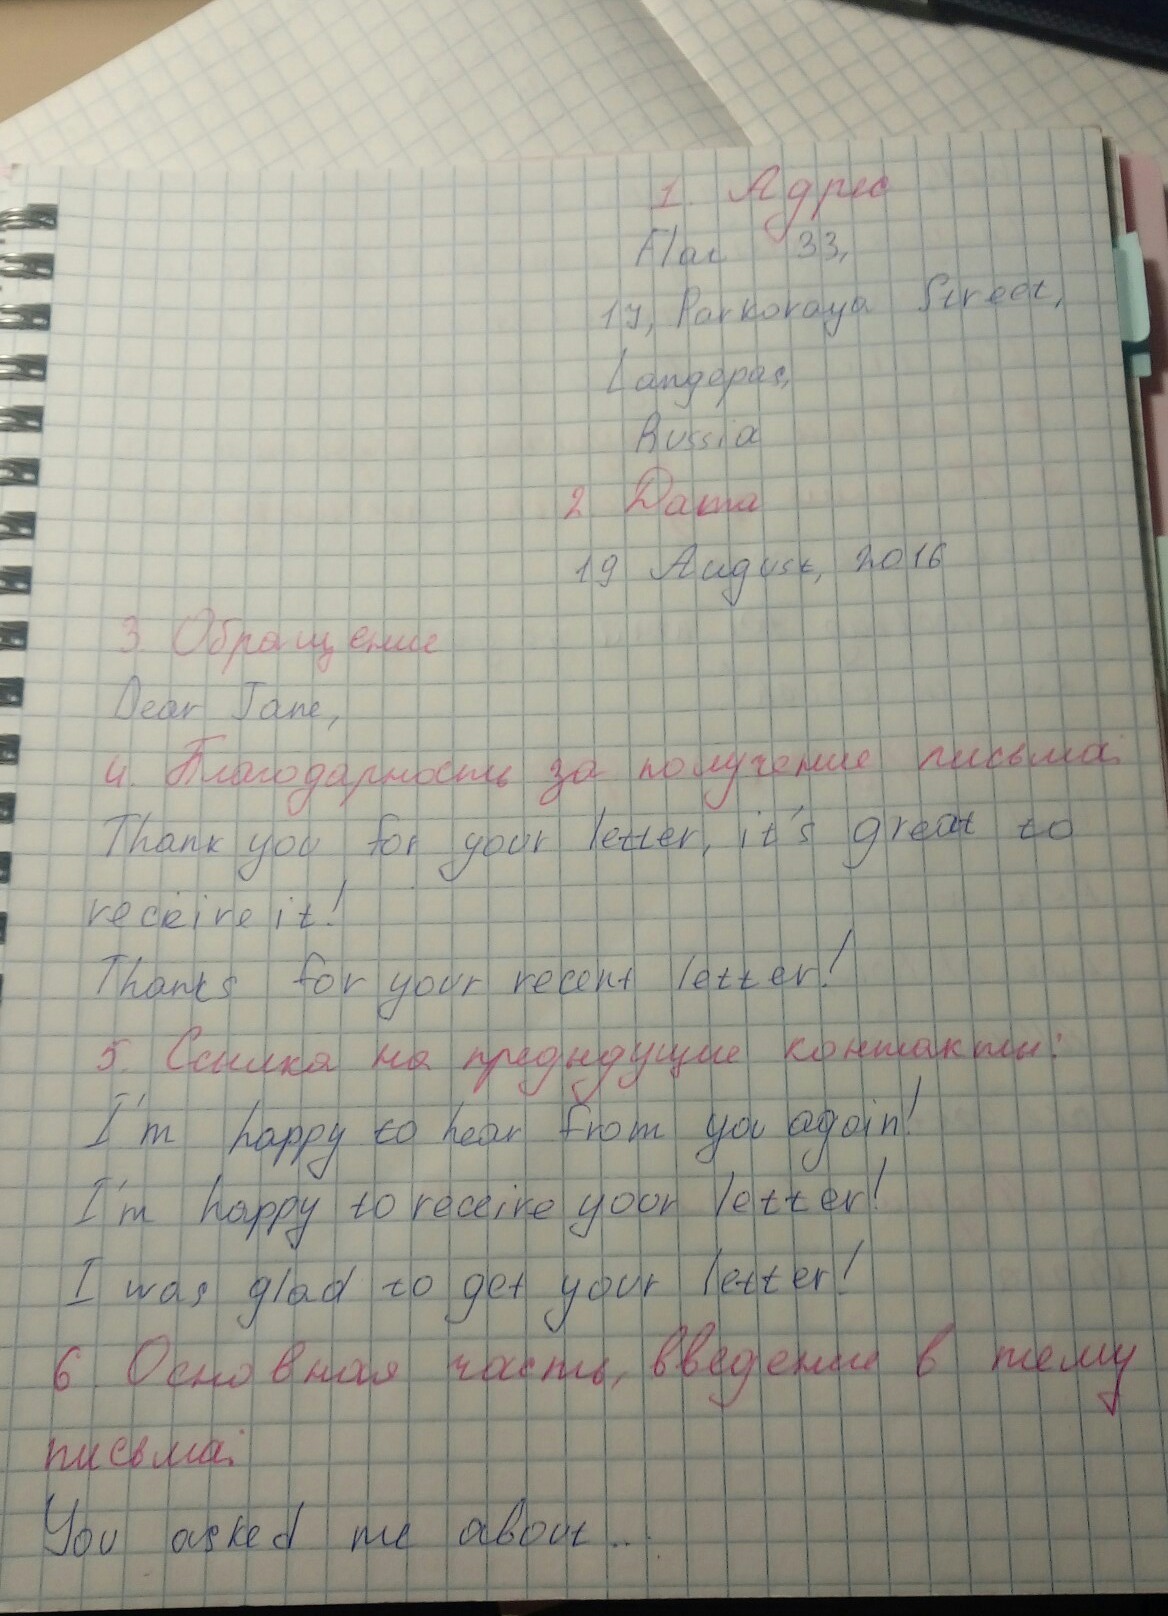 1. Адрес
Flat 33,
17, Parkovaya Street,
Langepas,
Russia
2 Дата
19 August, 2016
3 Обращение
Dear Jane,
4. Благодарность за получение письма:
Thank you for your letter, it's great to
receive it!
Thanks for your recent letter!
5. Ссылка на предыдущие контакты:
I'm happy to hear from you again!
I'm happy to receive your letter!
I was glad to get your letter!
6 Основная часть, введение в тему
письма:
You asked me about...